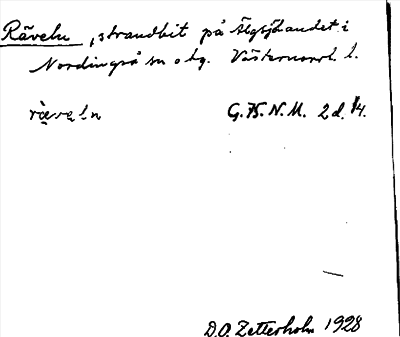 Räveln, strandbit på Älgsjölandet i
Nordingrå sn o tg. Västernorrl. l.
räveln G.K.N.M. 2 d. 14.
D.O. Zetterholm 1928